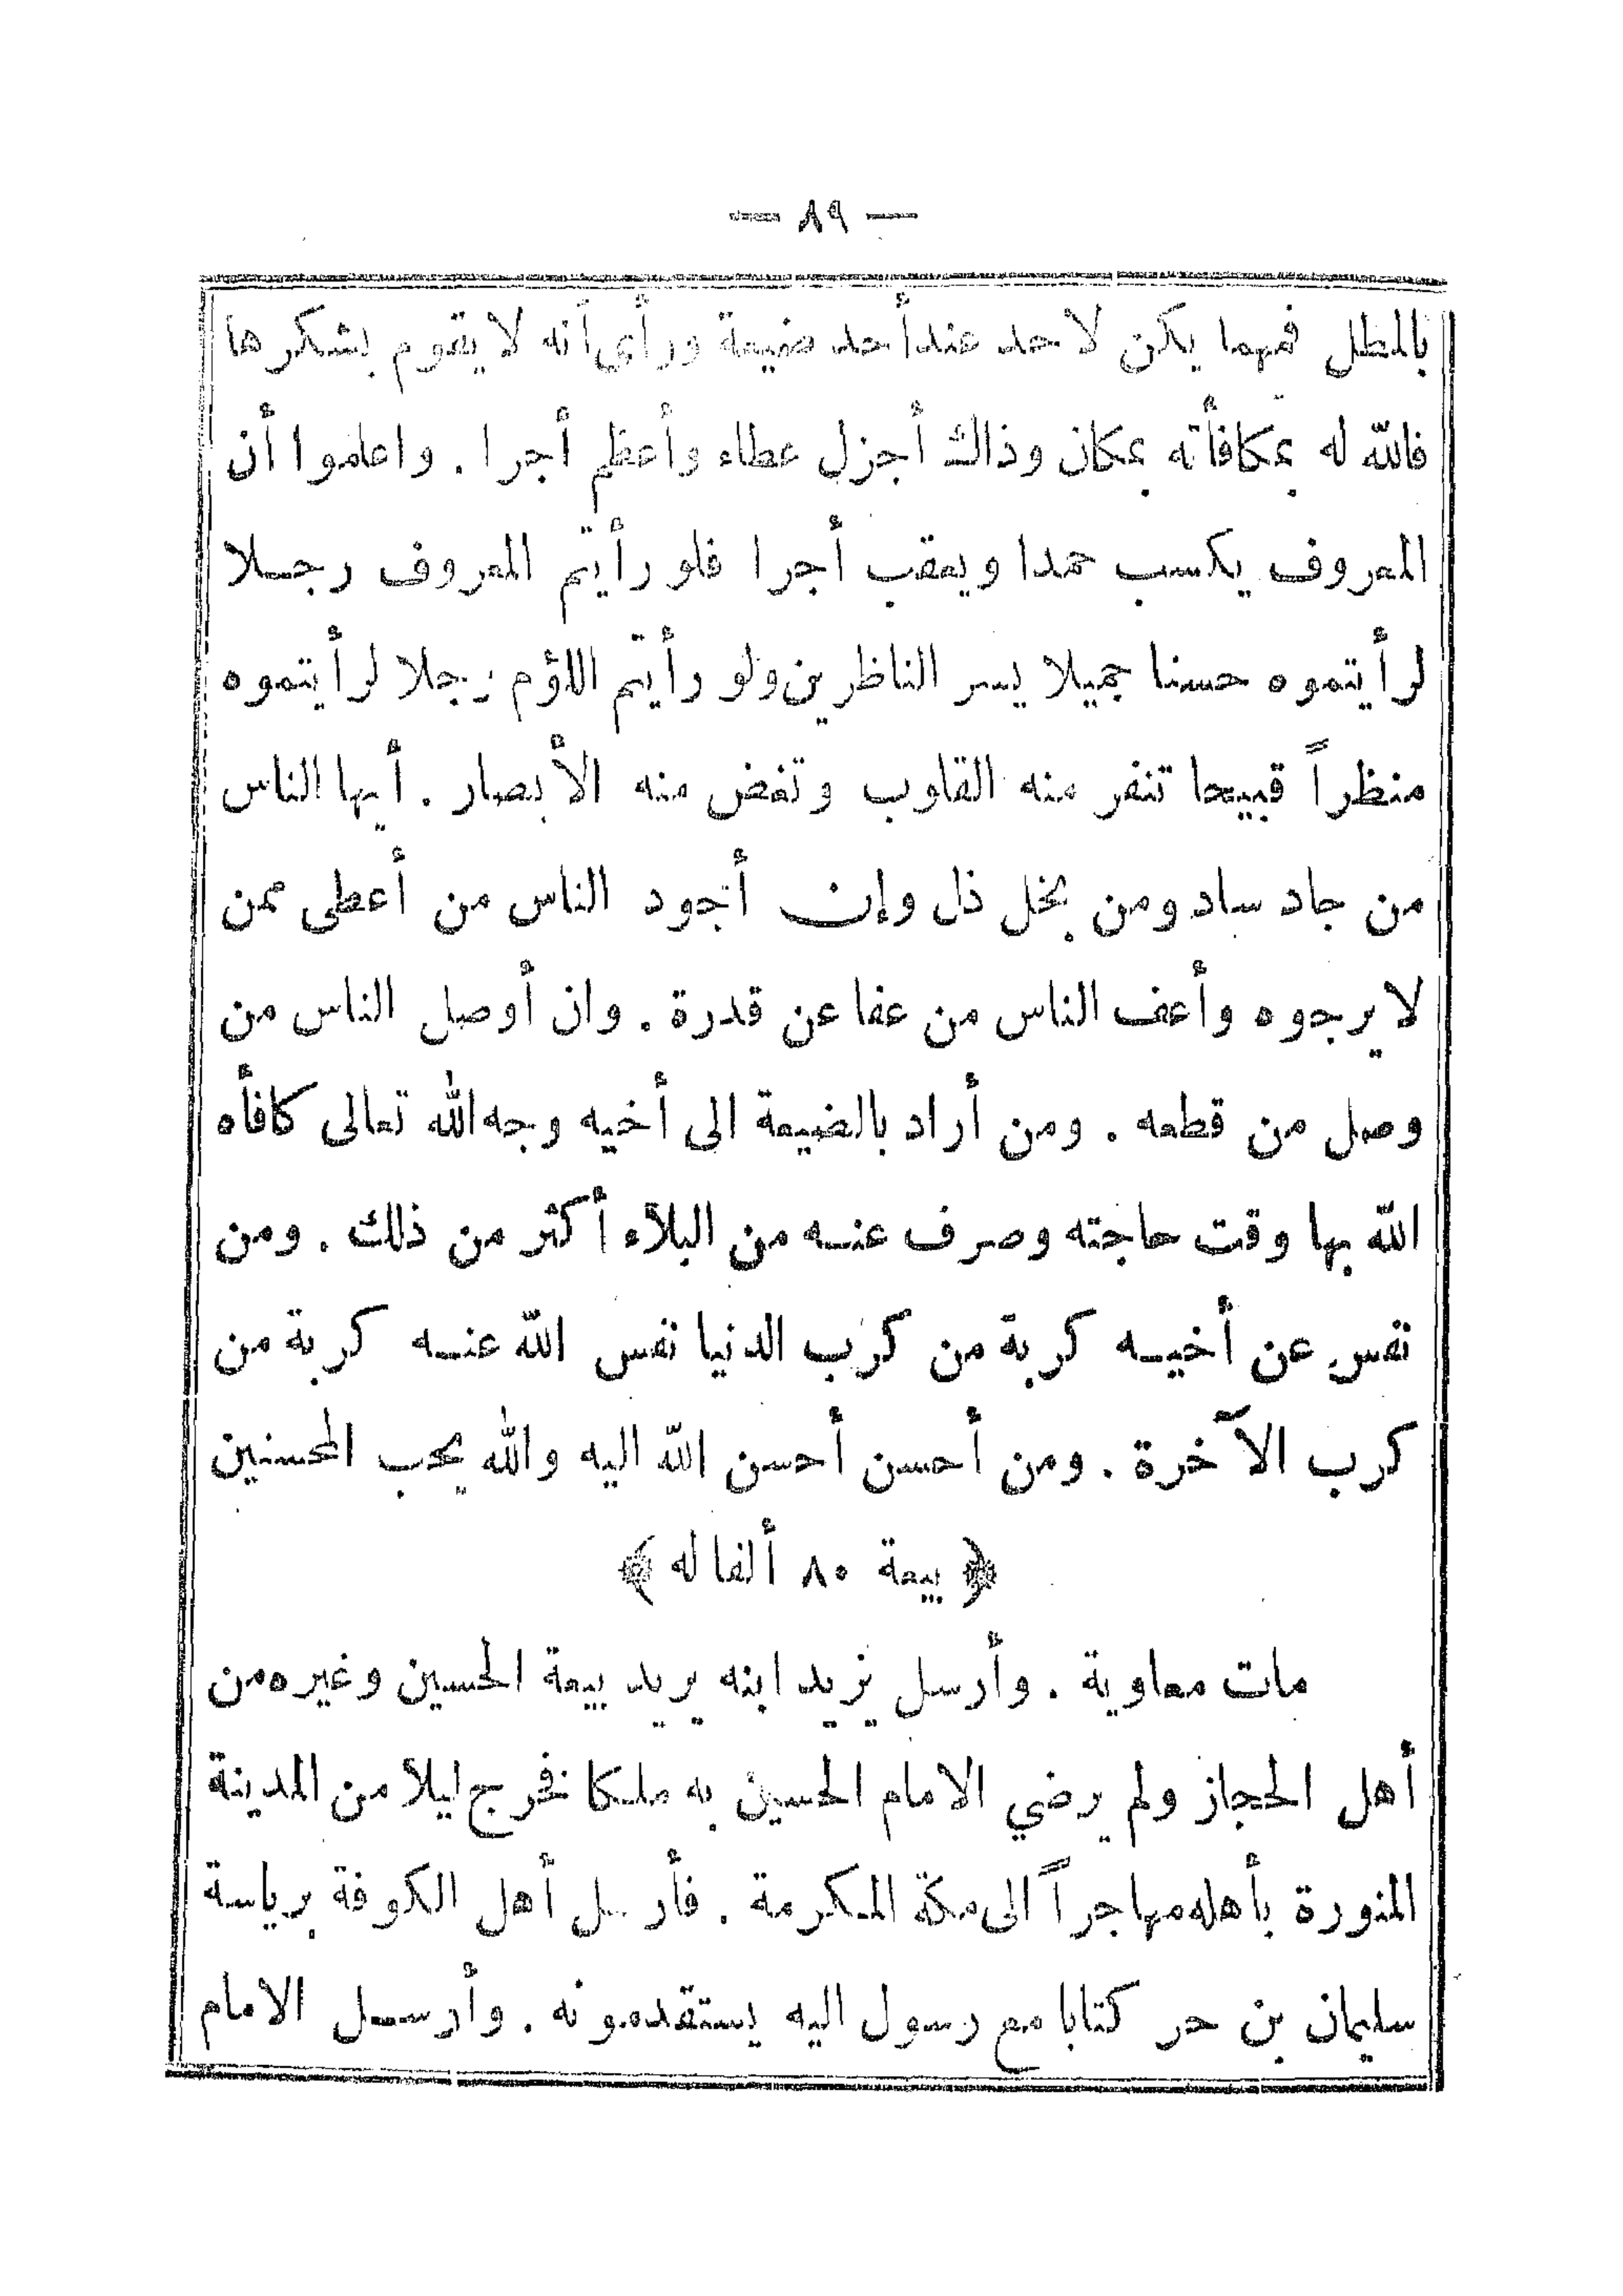 — ٨٩ —
بالمطل فمهما يكن لاحد عند أحد ضيعة ورأى أنه لا يقوم بشكرها
فالله له بمكافأته بمكان وذاك أجزل عطاء وأعظم أجرا . واعلموا أن
المعروف يكسب حمدا ويعقب أجرا فلو رأيتم المعروف رجلا
لرأيتموه حسنا جميلا يسر الناظرين ولو رأيتم اللؤم رجلا لرأيتموه
منظراً قبيحا تنفر منه القلوب وتغض منه الأبصار . أيها الناس
من جاد ساد ومن بخل ذل وإن أجود الناس من أعطى ممن
لا يرجوه وأعف الناس من عفا عن قدرة . وان أوصل الناس من
وصل من قطعه . ومن أراد بالضيعة الى أخيه وجه الله تعالى كافأه
الله بها وقت حاجته وصرف عنه من البلاء أكثر من ذلك . ومن
نفس عن أخيه كربة من كرب الدنيا نفس الله عنه كربة من
كرب الآخرة . ومن أحسن أحسن الله اليه والله يحب المحسنين
﴿ بيعة ٨٠ ألفا له ﴾
مات معاوية . وأرسل يزيد ابنه يريد بيعة الحسين وغيره من
أهل الحجاز ولم يرضي الامام الحسين به ملكا فخرج ليلا من المدينة
المنورة بأهله مهاجراً الى مكة المكرمة . فأرسل أهل الكوفة برياسة
سليمان بن حر كتابا مع رسول اليه يستقدمونه . وأرسل الامام